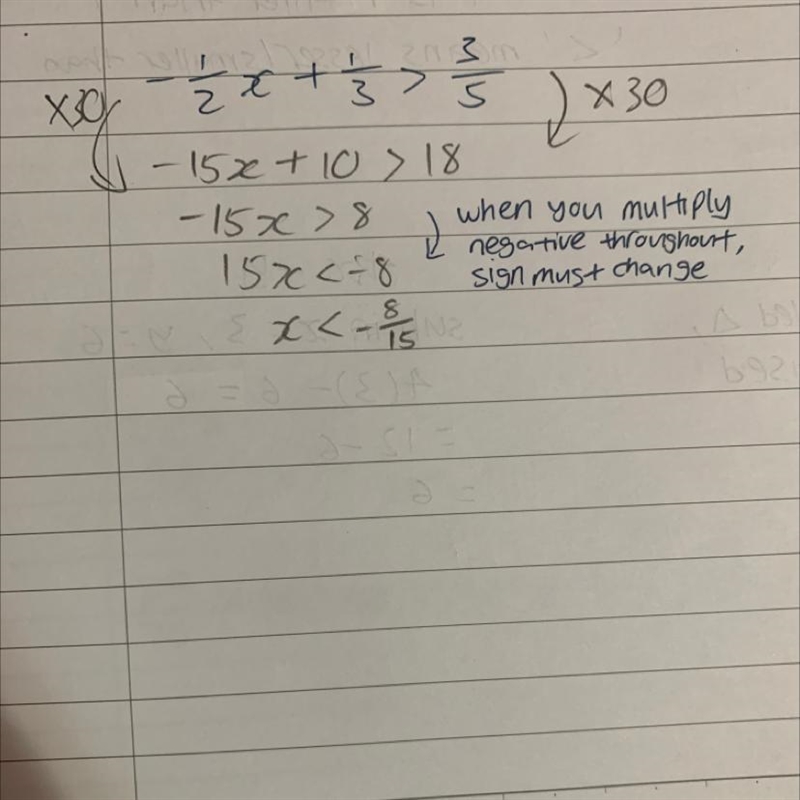 -1/2 x + 1/3 > 3/5
×30 ×30
-15x + 10 > 18
-15x > 8 when you multiply
negative throughout,
15x < -8 sign must change
x < -8/15